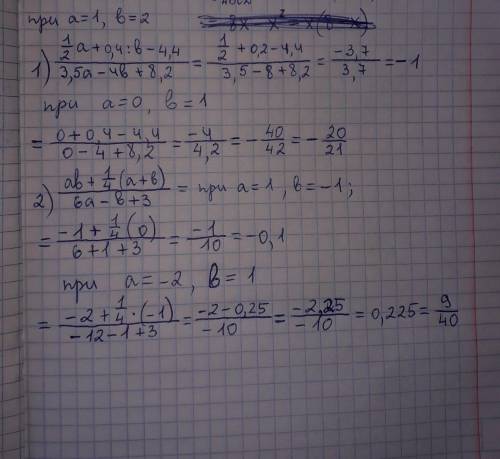 при a=1, b=2
1) (1/2 a+0,4:b-4,4)/(3,5a-4b+8,2) = (1/2+0,2-4,4)/(3,5-8+8,2) = -3,7/3,7 = -1
при a=0, b=1
= (0+0,4-4,4)/(0-4+8,2) = -4/4,2 = -40/42 = -20/21
2) (ab+1/4(a+b))/(6a-b+3) = при a=1, b=-1;
= (-1+1/4(0))/(6+1+3) = -1/10 = -0,1
при a=-2, b=1
= (-2+1/4·(-1))/(-12-1+3) = (-2-0,25)/-10 = -2,25/-10 = 0,225 = 9/40